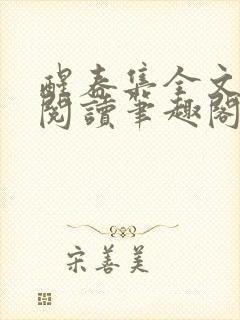 醒春集全文
閱讀筆趣閣
宋善美